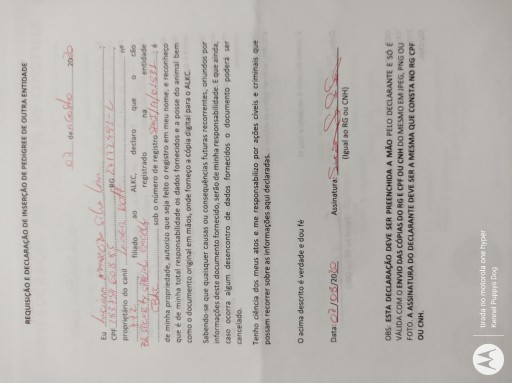 REQUISIÇÃO E DECLARAÇÃO DE INSERÇÃO DE PEDIGREE DE OUTRA ENTIDADE
de 2020
Eu
CPF RG
proprietário do canil nº
filiado ao ALKC, declaro que o cão
registrado na entidade
sob o número de registro é
de minha propriedade, autorizo que seja feito o registro em meu nome, e reconheço
que é de minha total responsabilidade os dados fornecidos e a posse do animal bem
como o documento original em mãos, onde forneço a cópia digital para o ALKC.
Sabendo-se que quaisquer causas ou consequências futuras recorrentes, oriundos por
informações deste documento fornecido, serão de minha responsabilidade. E que ainda,
caso ocorra algum desencontro de dados fornecidos o documento poderá ser
cancelado.
Tenho ciência dos meus atos e me responsabilizo por ações cíveis e criminais que
possam recorrer sobre as informações aqui declaradas.
O acima descrito é verdade e dou fé
Data: /2020 Assinatura
(Igual ao RG ou CNH)
OBS: ESTA DECLARAÇÃO DEVE SER PREENCHIDA A MÃO PELO DECLARANTE E SÓ É
VÁLIDA COM O ENVIO DAS CÓPIAS DO RG E CPF OU CNH DO MESMO EM JPEG, PNG OU
FOTO. A ASSINATURA DO DECLARANTE DEVE SER A MESMA QUE CONSTA NO RG CPF
OU CNH.
tirada no motorola one hyper
Kennel Puppys Dog